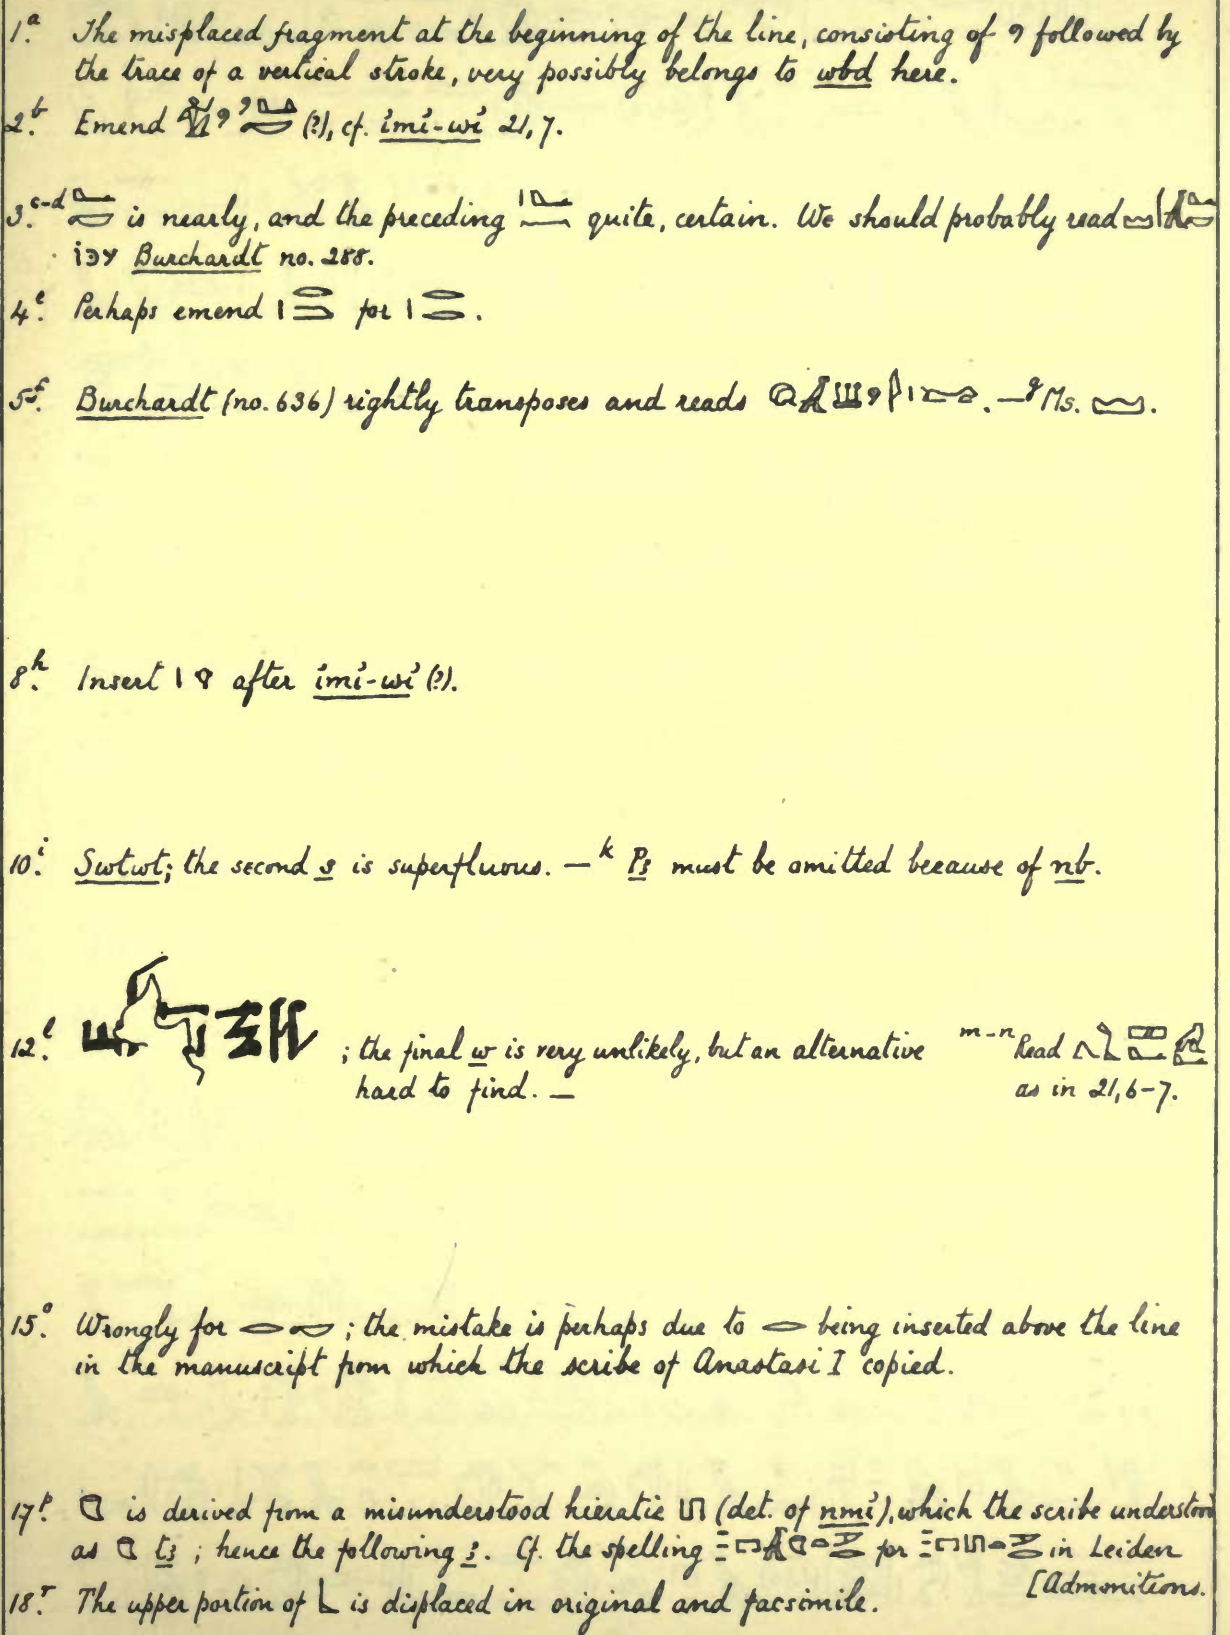 1.ᵃ The misplaced fragment at the beginning of the line, consisting of 𓏲 followed by
the trace of a vertical stroke, very possibly belongs to wbd here.
2.ᵇ Emend (?), cf. imi-wi 21, 7.
3.ᶜ⁻ᵈ is nearly, and the preceding quite, certain. We should probably read
Burchardt no. 288.
4.ᵉ Perhaps emend for .
5.ᶠ Burchardt (no. 636) rightly transposes and reads . —ᵍ Ms. 𓈉.
8.ʰ Insert after imi-wi (?).
10.ⁱ Swtwt; the second s is superfluous. —ᵏ Pꜣ must be omitted because of nb.
12.ˡ ; the final w is very unlikely, but an alternative ᵐ⁻ⁿ Read
hard to find. — as in 21, 6-7.
15.ᵒ Wrongly for ; the mistake is perhaps due to 𓂋 being inserted above the line
in the manuscript from which the scribe of Anastasi I copied.
17.ᵖ is derived from a misunderstood hieratic (det. of nmi), which the scribe understood
as tꜣ; hence the following ꜣ. Cf. the spelling for in Leiden
[Admonitions.
18.ʳ The upper portion of is displaced in original and facsimile.